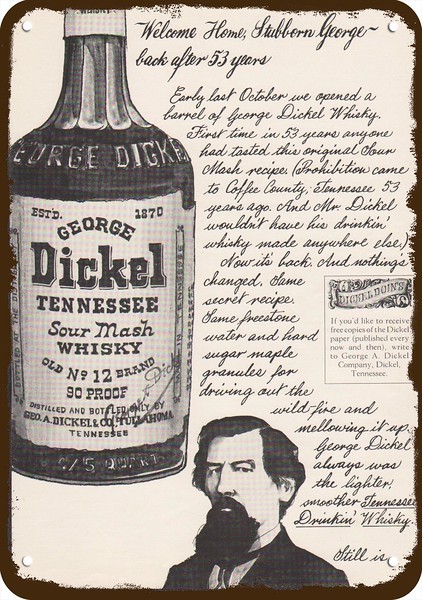 Welcome Home, Stubborn George~
back after 53 years
Early last October we opened a
barrel of George Dickel Whisky.
First time in 53 years anyone
had tasted this original Sour
Mash recipe. (Prohibition came
to Coffee County, Tennessee 53
years ago. And Mr. Dickel
wouldn't have his drinkin'
whisky made anywhere else.)
Now its back. And nothings
changed. Same
secret recipe.
Same freestone
water and hard
sugar maple
granules for
driving out the
wild-fire and
mellowing it up.
George Dickel
always was
the lighter,
smoother Tennessee
Drinkin' Whisky.
Still is.
WHISKY
GEORGE DICKEL
ESTD. 1870
GEORGE
Dickel
TENNESSEE
Sour Mash
WHISKY
OLD No 12 BRAND
90 PROOF
DISTILLED AND BOTTLED ONLY BY
GEO. A. DICKEL & CO., TULLAHOMA
TENNESSEE
4/5 QUART
DICKEL DOIN'S
If you'd like to receive
free copies of the Dickel
paper (published every
now and then), write
to George A. Dickel
Company, Dickel,
Tennessee.